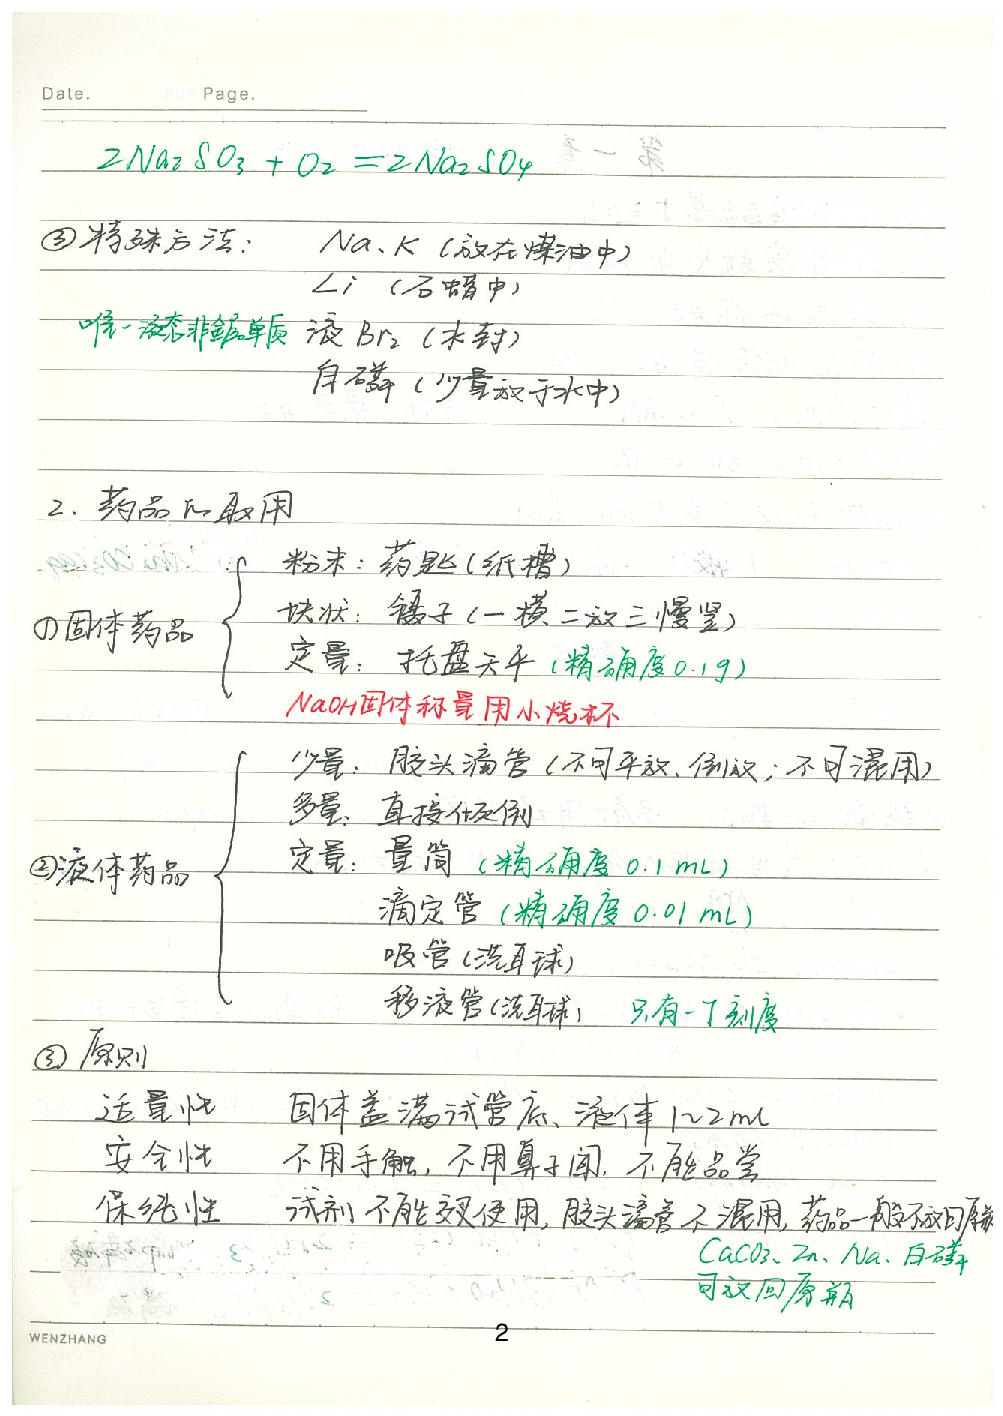 Date. Page.
2Na₂SO₃ + O₂ = 2Na₂SO₄
③特殊方法: Na、K (放在煤油中)
Li (石蜡中)
唯一液态非金属单质 液Br₂ (水封)
白磷 (少量放于水中)
2. 药品的取用
①固体药品
粉末: 药匙 (纸槽)
块状: 镊子 (一横二放三慢竖)
定量: 托盘天平 (精确度0.1g)
NaOH固体称量用小烧杯
②液体药品
少量: 胶头滴管 (不可平放、倒放; 不可混用)
多量: 直接倾倒
定量: 量筒 (精确度0.1mL)
滴定管 (精确度0.01mL)
吸管 (洗耳球)
移液管 (洗耳球) 只有一丁刻度
③原则
适量性 固体盖满试管底、液体1~2mL
安全性 不用手触, 不用鼻子闻, 不能品尝
保纯性 试剂不能交叉使用, 胶头滴管不混用, 药品一般不放回原瓶
CaCO₃、Zn、Na、白磷
可放回原瓶
WENZHANG
2